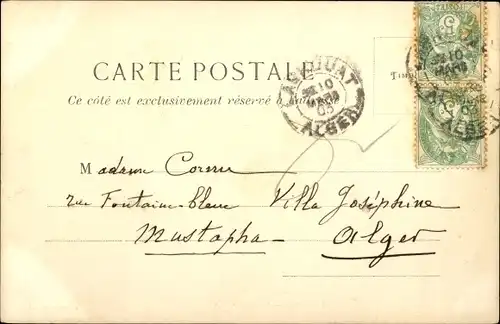 CARTE POSTALE
Ce côté est exclusivement réservé à
LAGHOUAT
10
MARS
03
ALGER
M adame Cornu
rue Fontaine-bleue Villa Joséphine
Mustapha - Alger